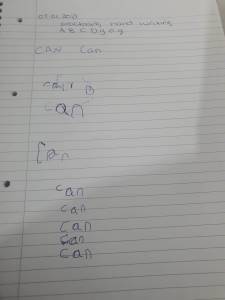 practising hand writing
A B C D g a g
CAN Can
can B
can
can
can
can
can
can
can